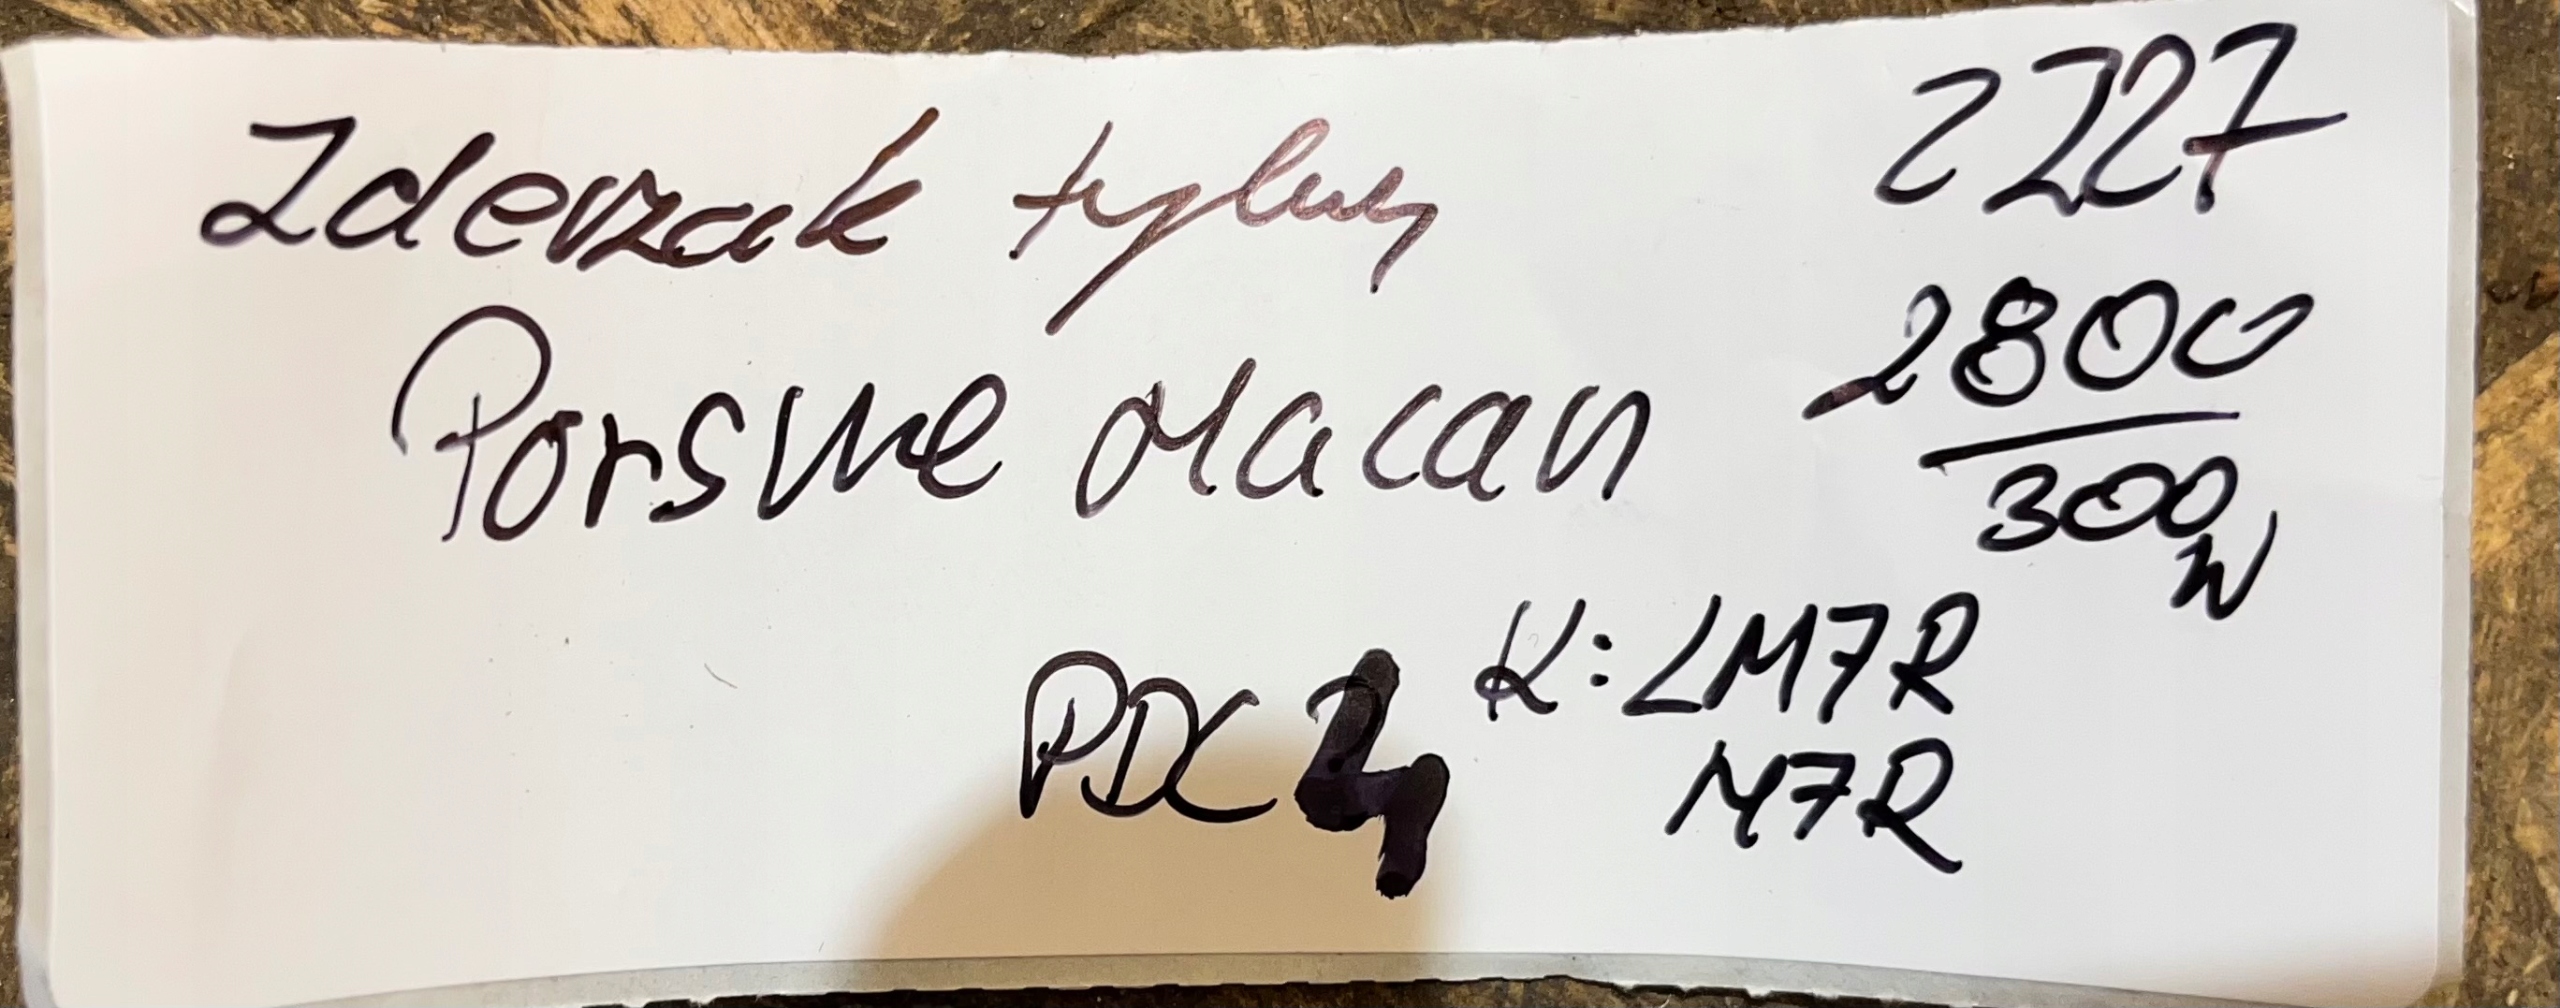 Zderzak tylny
2227
Porsche Macan
2800
300
W
PDC 4
K: LM7R
M7R